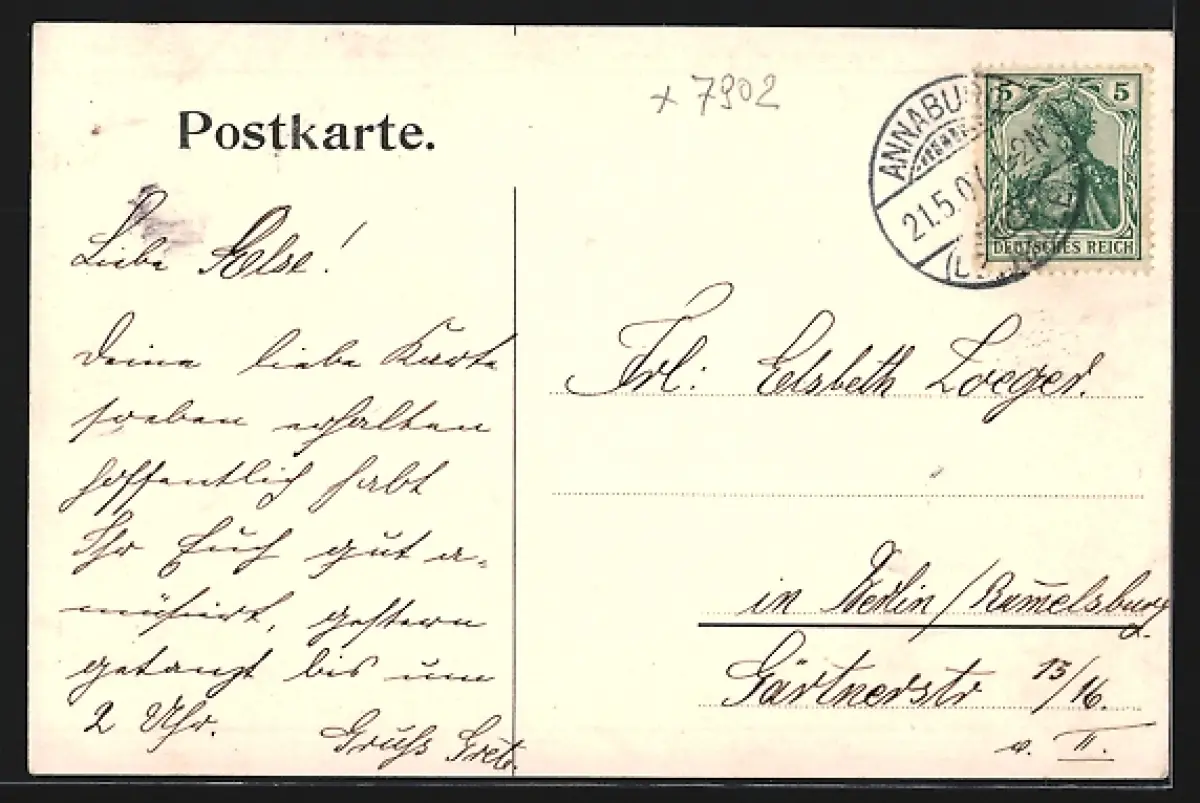 Postkarte.
× 7902
ANNABURG
21.5.0
1-2N
5 5
DEUTSCHES REICH
Liebe Else!
Deine liebe Karte
soeben erhalten
hoffentlich habt
Ihr Euch gut a-
müsirt, gestern
getanzt bis um
2 Uhr.
Gruß Grete.
Frl: Elsbeth Zoeger.
in Berlin/Rum̄elsburg
Gärtnerstr 15/16.
v. II.